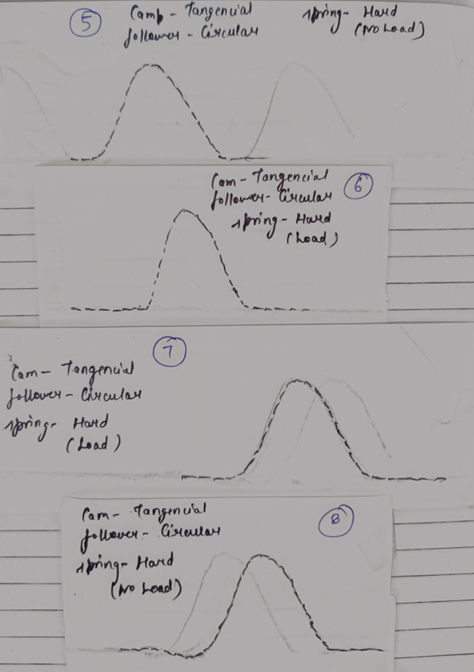 5
Camp - Tangencial
follower - Circular
spring - Hard
(No Load)
6
Cam - Tangencial
follower - Circular
spring - Hard
(Load)
7
Cam - Tangencial
follower - Circular
spring - Hard
(Load)
8
Cam - Tangencial
follower - Circular
spring - Hard
(No Load)